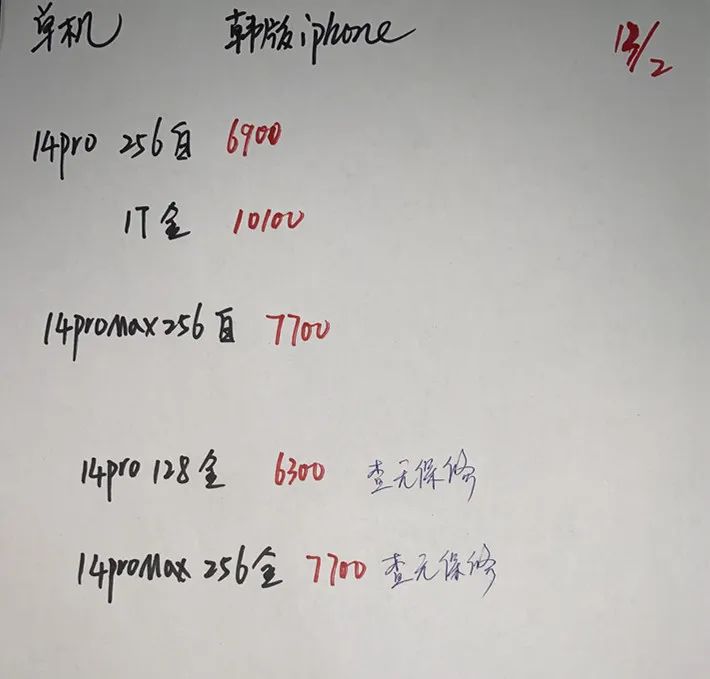 单机 韩版iphone 13/2
14pro 256白 6900
1T金 10100
14promax256白 7700
14pro 128金 6300 查无保修
14promax 256金 7700 查无保修